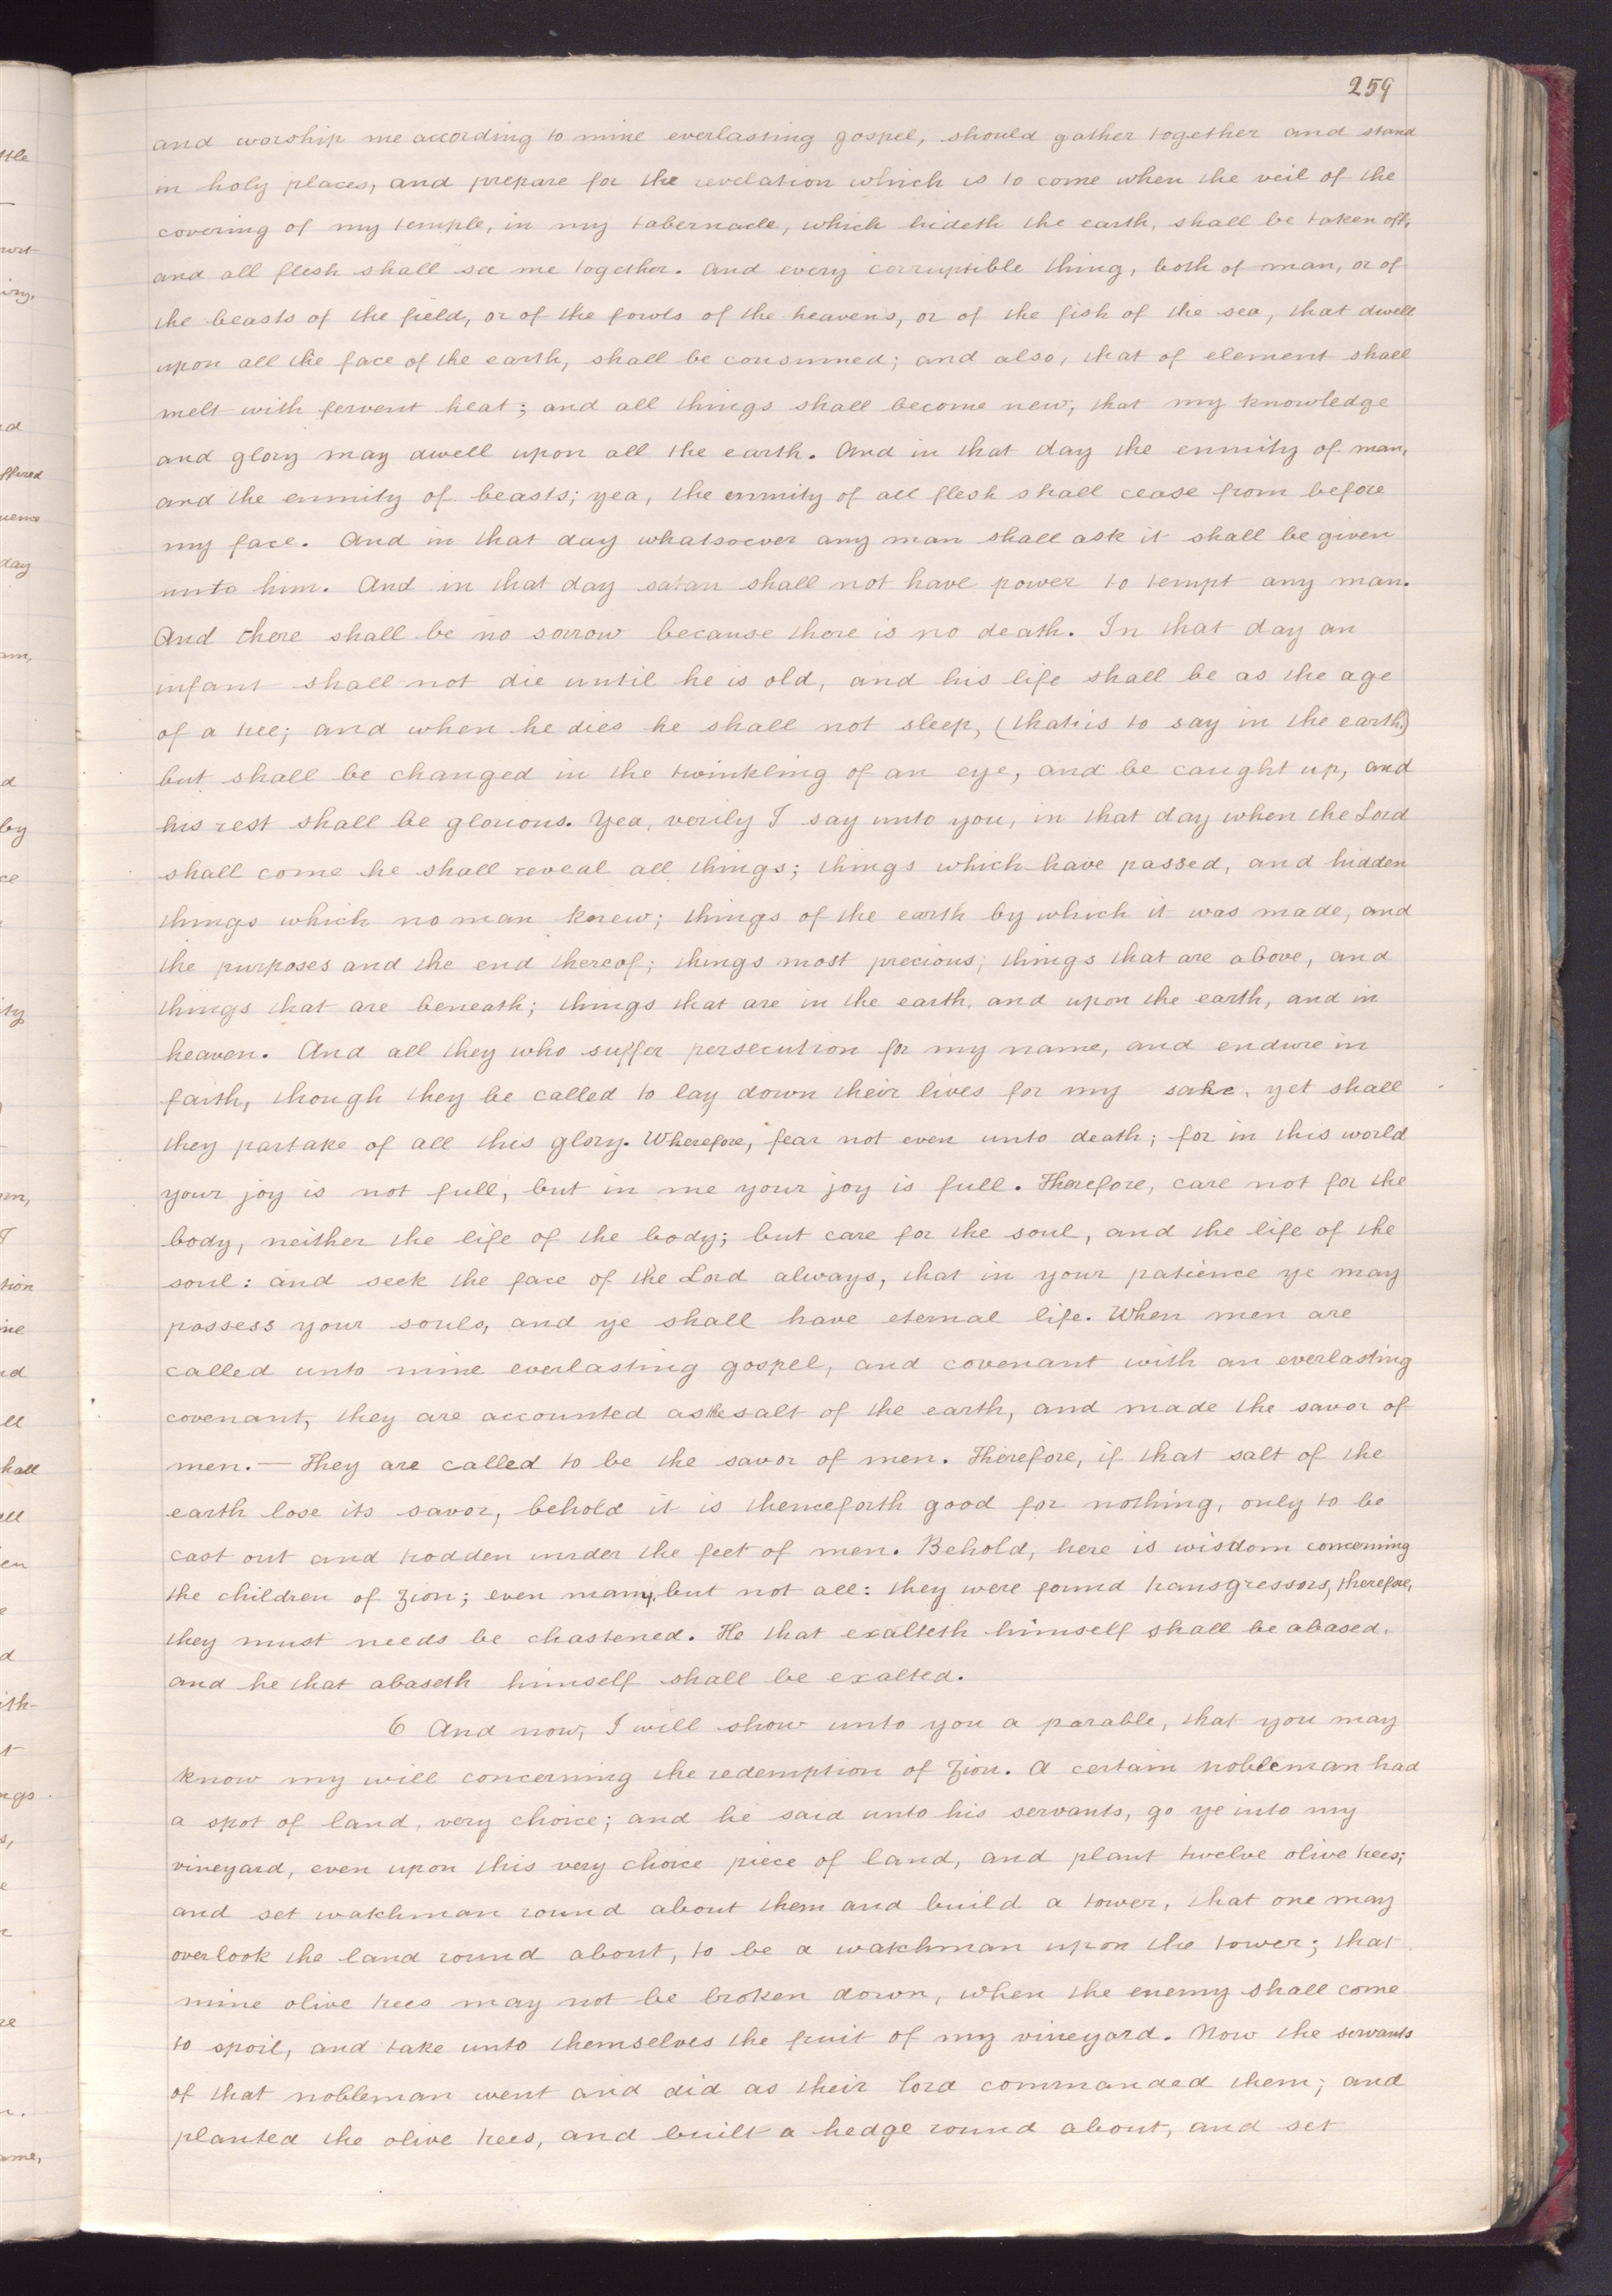 259
and worship me according to mine everlasting gospel, should gather together and stand
in holy places, and prepare for the revelation which is to come when the veil of the
covering of my temple, in my tabernacle, which hideth the earth, shall be taken off,
and all flesh shall see me together. And every corruptible thing, both of man, or of
the beasts of the field, or of the fowls of the heavens, or of the fish of the sea, that dwell
upon all the face of the earth, shall be consumed; and also, that of element shall
melt with fervent heat; and all things shall become new, that my knowledge
and glory may dwell upon all the earth. And in that day the enmity of man,
and the enmity of beasts; yea, the enmity of all flesh shall cease from before
my face. And in that day whatsoever any man shall ask it shall be given
unto him. And in that day satan shall not have power to tempt any man.
And there shall be no sorrow because there is no death. In that day an
infant shall not die until he is old, and his life shall be as the age
of a tree; and when he dies he shall not sleep, (that is to say in the earth,)
but shall be changed in the twinkling of an eye, and be caught up, and
his rest shall be glorious. Yea, verily I say unto you, in that day when the Lord
shall come he shall reveal all things; things which have passed, and hidden
things which no man knew; things of the earth by which it was made, and
the purposes and the end thereof; things most precious; things that are above, and
things that are beneath; things that are in the earth, and upon the earth, and in
heaven. And all they who suffer persecution for my name, and endure in
faith, though they be called to lay down their lives for my sake, yet shall
they partake of all this glory. Wherefore, fear not even unto death; for in this world
your joy is not full, but in me your joy is full. Therefore, care not for the
body, neither the life of the body; but care for the soul, and the life of the
soul: and seek the face of the Lord always, that in your patience ye may
possess your souls, and ye shall have eternal life. When men are
called unto mine everlasting gospel, and covenant with an everlasting
covenant, they are accounted as the salt of the earth, and made the savor of
men.— They are called to be the savor of men. Therefore, if that salt of the
earth lose its savor, behold it is thenceforth good for nothing, only to be
cast out and trodden under the feet of men. Behold, here is wisdom concerning
the children of Zion; even many, but not all: they were found transgressors, therefore,
they must needs be chastened. He that exalteth himself shall be abased,
and he that abaseth himself shall be exalted.
6 And now, I will show unto you a parable, that you may
know my will concerning the redemption of Zion. A certain nobleman had
a spot of land, very choice; and he said unto his servants, go ye into my
vineyard, even upon this very choice piece of land, and plant twelve olive trees;
and set watchman round about them and build a tower, that one may
overlook the land round about, to be a watchman upon the tower; that
mine olive trees may not be broken down, when the enemy shall come
to spoil, and take unto themselves the fruit of my vineyard. Now the servants
of that nobleman went and did as their lord commanded them; and
planted the olive trees, and built a hedge round about, and set